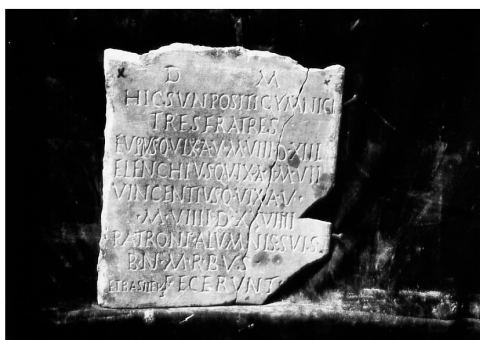 D M
HIC SVN POSITI GYMNICI
TRES FRATRES
QVIX A V M VIII D XIII
ELENCHIVS QVIX A M VII
VINCENTIVS QVIX A V
M VIIII D XXVIIII
PATRONI ALVMNIS SVIS
B N M R B V S
FECERVNT